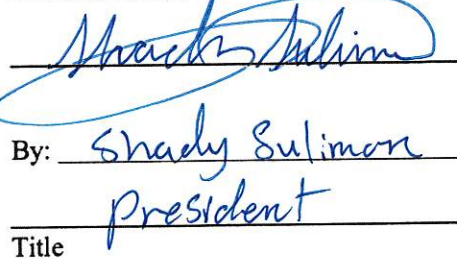 Shady Suliman
By: Shady Suliman
President
Title